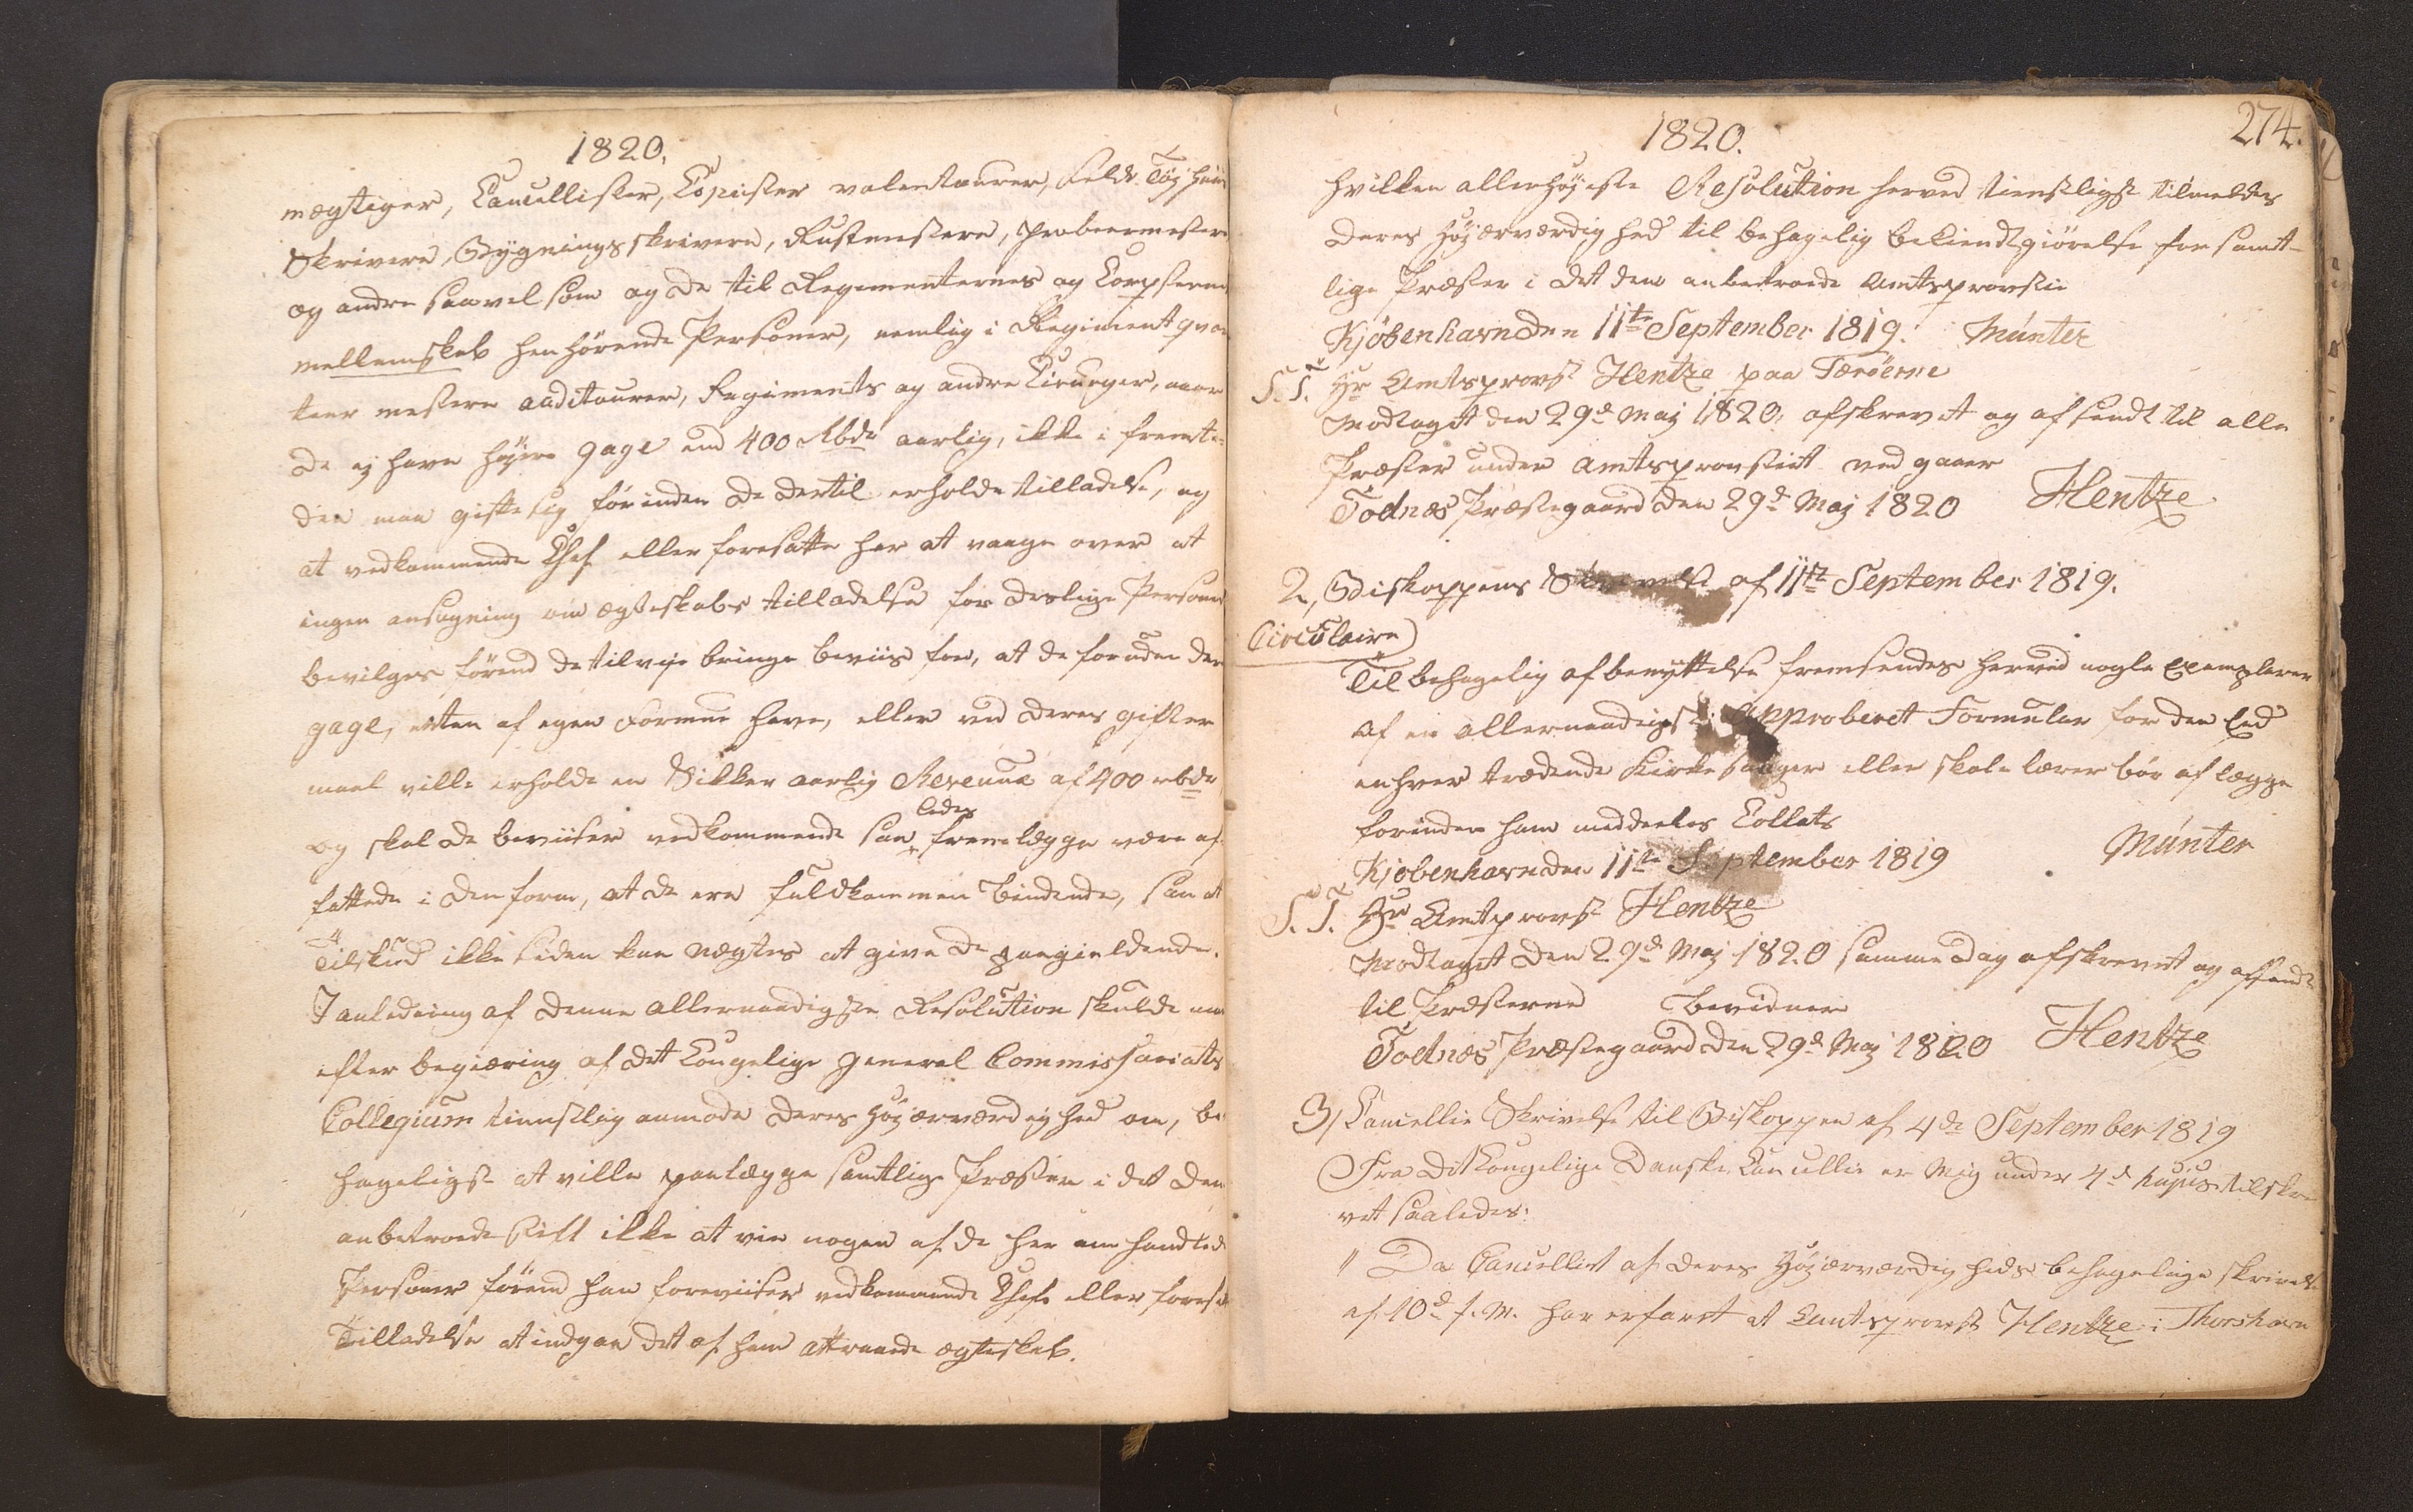 1820.
mægtiger, Cancellister, Copiister volontairer, Feldt. Tøjhuus
Skrivere, Bygningsskrivere, Rustmestere, Probeermestere
og andre saavel som og de til Regimenternes og Corpserne
mellemskab henhørende Personer, nemlig i Regiment qvar
teer mestere auditeurer, Regiments og andre Cirurger, naar
de ej have høyere gage end 400 Rbdr aarlig, ikke i fremti-
den maa gifte sig førinden de dertil erholde tilladelse, og
at vedkommende Chef eller foresatte har at vaage over at
ingen ansøgning om ægteskabs tilladelse for deslige Personer
bevilges førend de tilveje bringe beviis for, at de foruden der
gage, enten af egen Formue have, eller ved deres gifter
maal ville erholde en Sikker aarlig Revenue af 400 rbdr
og skal de beviiser vedkommende saa ledes fremlægge være af
fattede i den form, at de ere fuldkommen bindende, saa at
Tilskud ikke siden kan nægtes at give de paagieldende.
I anledning af denne allernaadigste Resolution skulde man
efter begiæring af det Kongelige general Commissariats
Collegium tienstlig anmode deres Høyærværdighed om, be
hageligst at ville paalægge samtlige Præster i det dem
anbetroede stift ikke at vie nogen af de her om handlede
Personer førend han foreviiser vedkommende Chefs eller foresat
Tilladelse at indgaae det af ham attraaede ægteskab.
274.
1820.
hvilken allerhøjeste Resolution herved tienstligst tilmeldes
Deres Højærværdighed til behagelig bekiendtgiørelse for samt-
lige Præster i det dem anbetroede Amtsprovstie
Kjøbenhavn den 11te September 1819. Münter
S. T. Hr Amtsprovst Hentze paa Færöerne
Modtaget den 29d Maj 1820, afskrevet og afsendt til alle
Præster under Amtsprovstiet ved gaaer
Todnæs Præstegaard den 29d Maj 1820 Hentze
2, Biskoppens Skrivelse af 11te September 1819.
Circulaire
Til behagelig afbenyttelse fremsendes herved nogle Exemplarer
af en allernaadigst approberet Formular for den Eed
enhver trædende Kirkesanger eller skole lærer bør aflægge
forinden ham meddeeles Collats
Kjøbenhavn den 11te September 1819 Münter
S. T. Hr Amtprovst Hentze
Modtaget den 29d Maj 1820 samme Dag afskrevet og afsendt
til Præsterne bevidner
Todnæs Præstegaard den 29d Maj 1820 Hentze
3, Cancellie Skrivelse til Biskoppen af 4de September 1819
Fra det Kongelige Danske Cancellie er Mig under 4d hujus tilskre
vet saaledes:
" Da Cancelliet af Deres Højærværdigheds behagelige skrivelse
af 10d f. M. har erfaret at Amtsprovst Hentze i Thorshavn